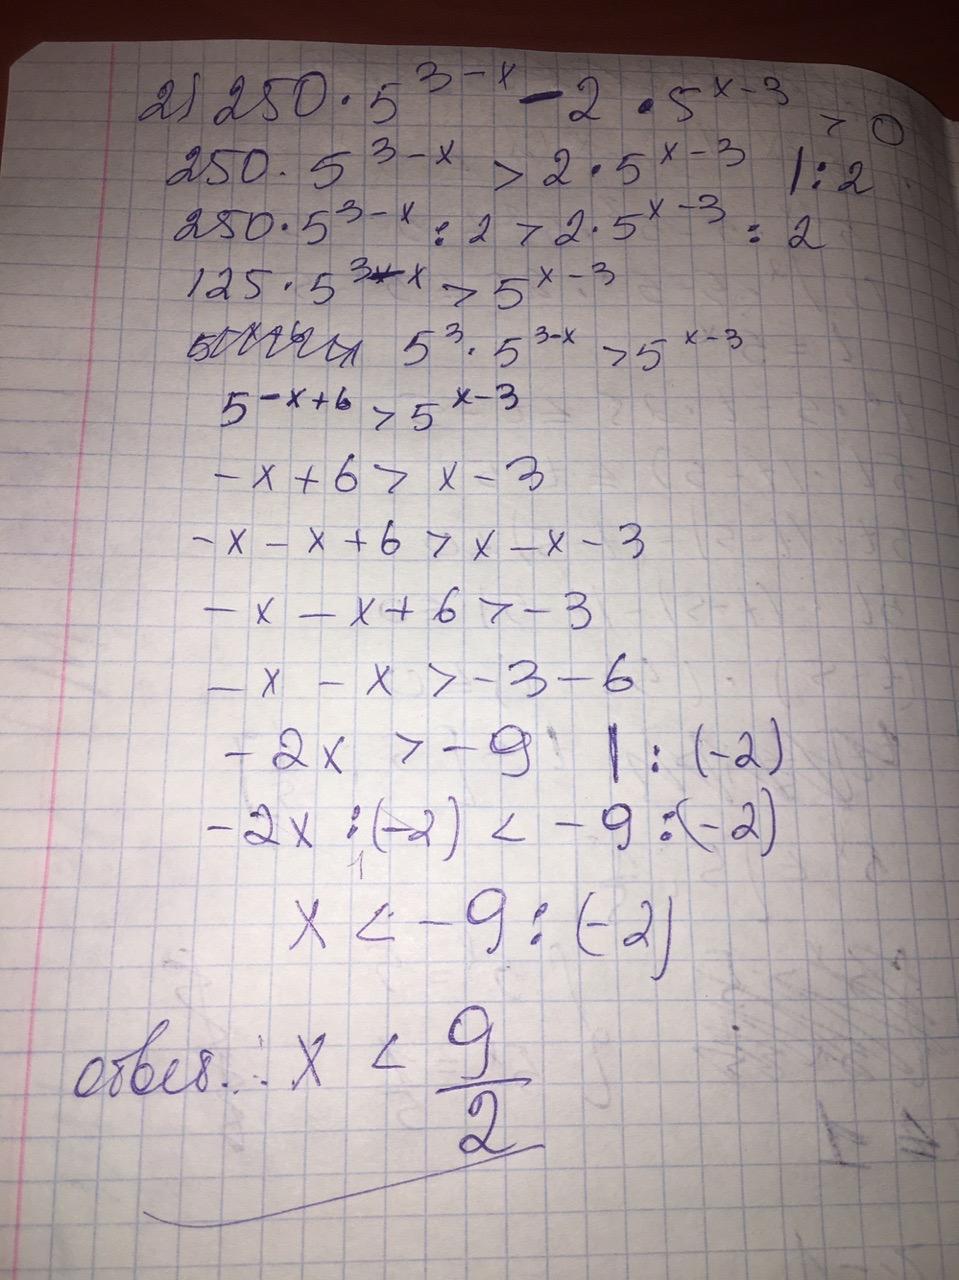 2) 250 · 5^{3-x} - 2 · 5^{x-3} > 0
250 · 5^{3-x} > 2 · 5^{x-3} | : 2
250 · 5^{3-x} : 2 > 2 · 5^{x-3} : 2
125 · 5^{3-x} > 5^{x-3}
5^3 · 5^{3-x} > 5^{x-3}
5^{-x+6} > 5^{x-3}
-x + 6 > x - 3
-x - x + 6 > x - x - 3
-x - x + 6 > -3
-x - x > -3 - 6
-2x > -9 | : (-2)
-2x : (-2) < -9 : (-2)
x < -9 : (-2)
ответ: x < \frac{9}{2}